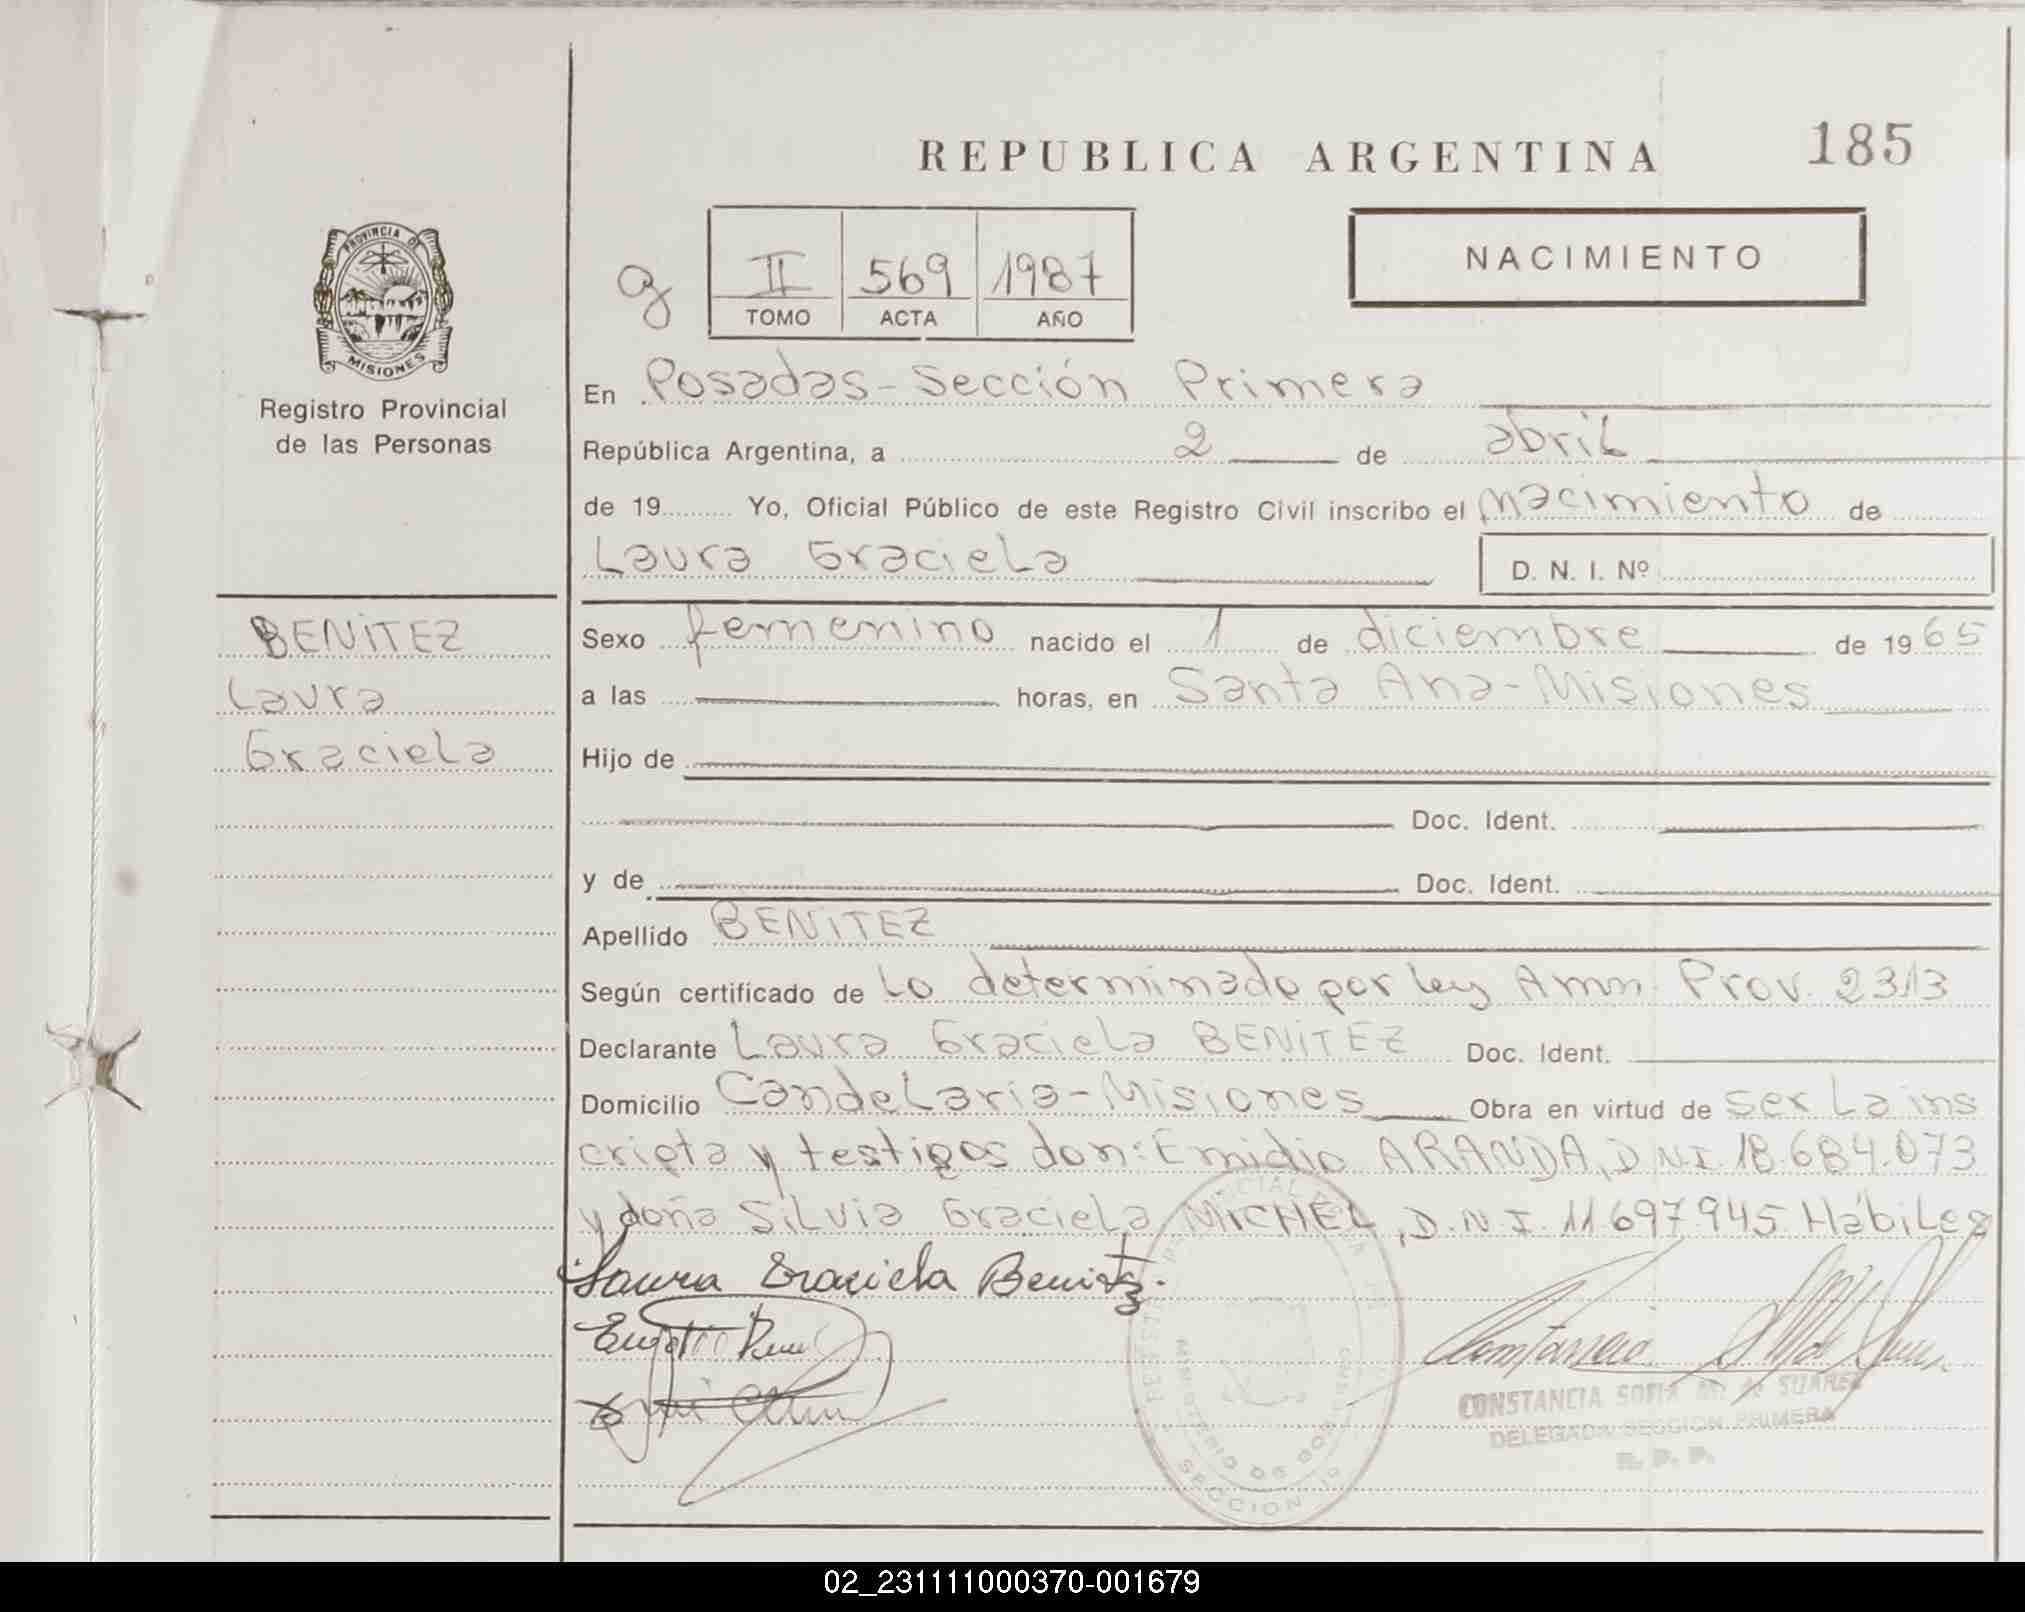 REPUBLICA ARGENTINA
185
PROVINCIA DE
MISIONES
Registro Provincial
de las Personas
g
II 569 1987
TOMO ACTA AÑO
NACIMIENTO
En Posadas-Sección Primera
República Argentina, a 2 de abril
de 19 Yo, Oficial Público de este Registro Civil inscribo el nacimiento de
Laura Graciela
D. N. I. Nº
BENITEZ
Laura
Graciela
Sexo femenino nacido el 1 de diciembre de 1965
a las horas, en Santa Ana-Misiones
Hijo de
Doc. Ident.
y de Doc. Ident.
Apellido BENITEZ
Según certificado de Lo determinado por ley Amn. Prov. 2313
Declarante Laura Graciela BENITEZ Doc. Ident.
Domicilio Candelaria-Misiones Obra en virtud de ser La ins
cripta y testigos don: Emidio ARANDA, D.N.I. 18.684.073
y doña Silvia Graciela MICHEL, D.N.I. 11 697 945 Hábiles
Laura Graciela Benitez.
MINISTERIO DE
SECCION 1º
CONSTANCIA SOFIA M. de SUAREZ
DELEGADA SECCION PRIMERA
R. P. P.
02_231111000370-001679